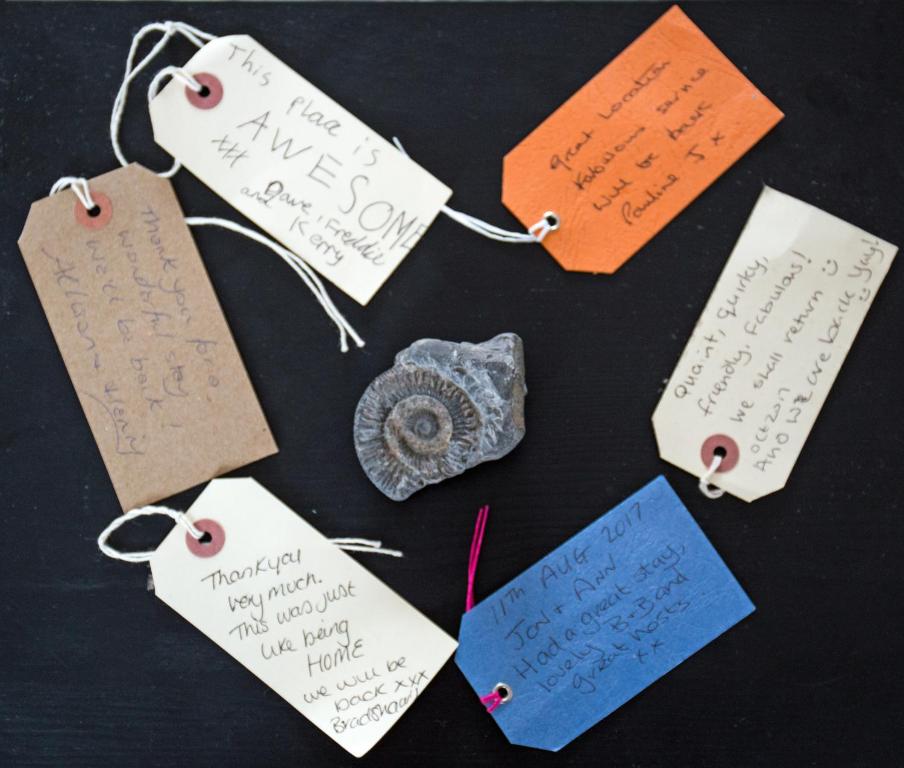 This
place is
AWESOME
xxx
Dave, Freddie
and Kerry
Great Location
Fabulous service
will be back
Pauline J x
Thank you for a
wonderful stay!
We'll be back!
Quaint, quirky,
friendly, Fabulous!
we shall return ☺
OCT 2017
And we are back Yay!
☺
Thankyou
very much.
This was just
like being
HOME
we will be
back xxx
11TH AUG 2017
JON + ANN
Had a great stay,
lovely B+B and
great hosts.
xx